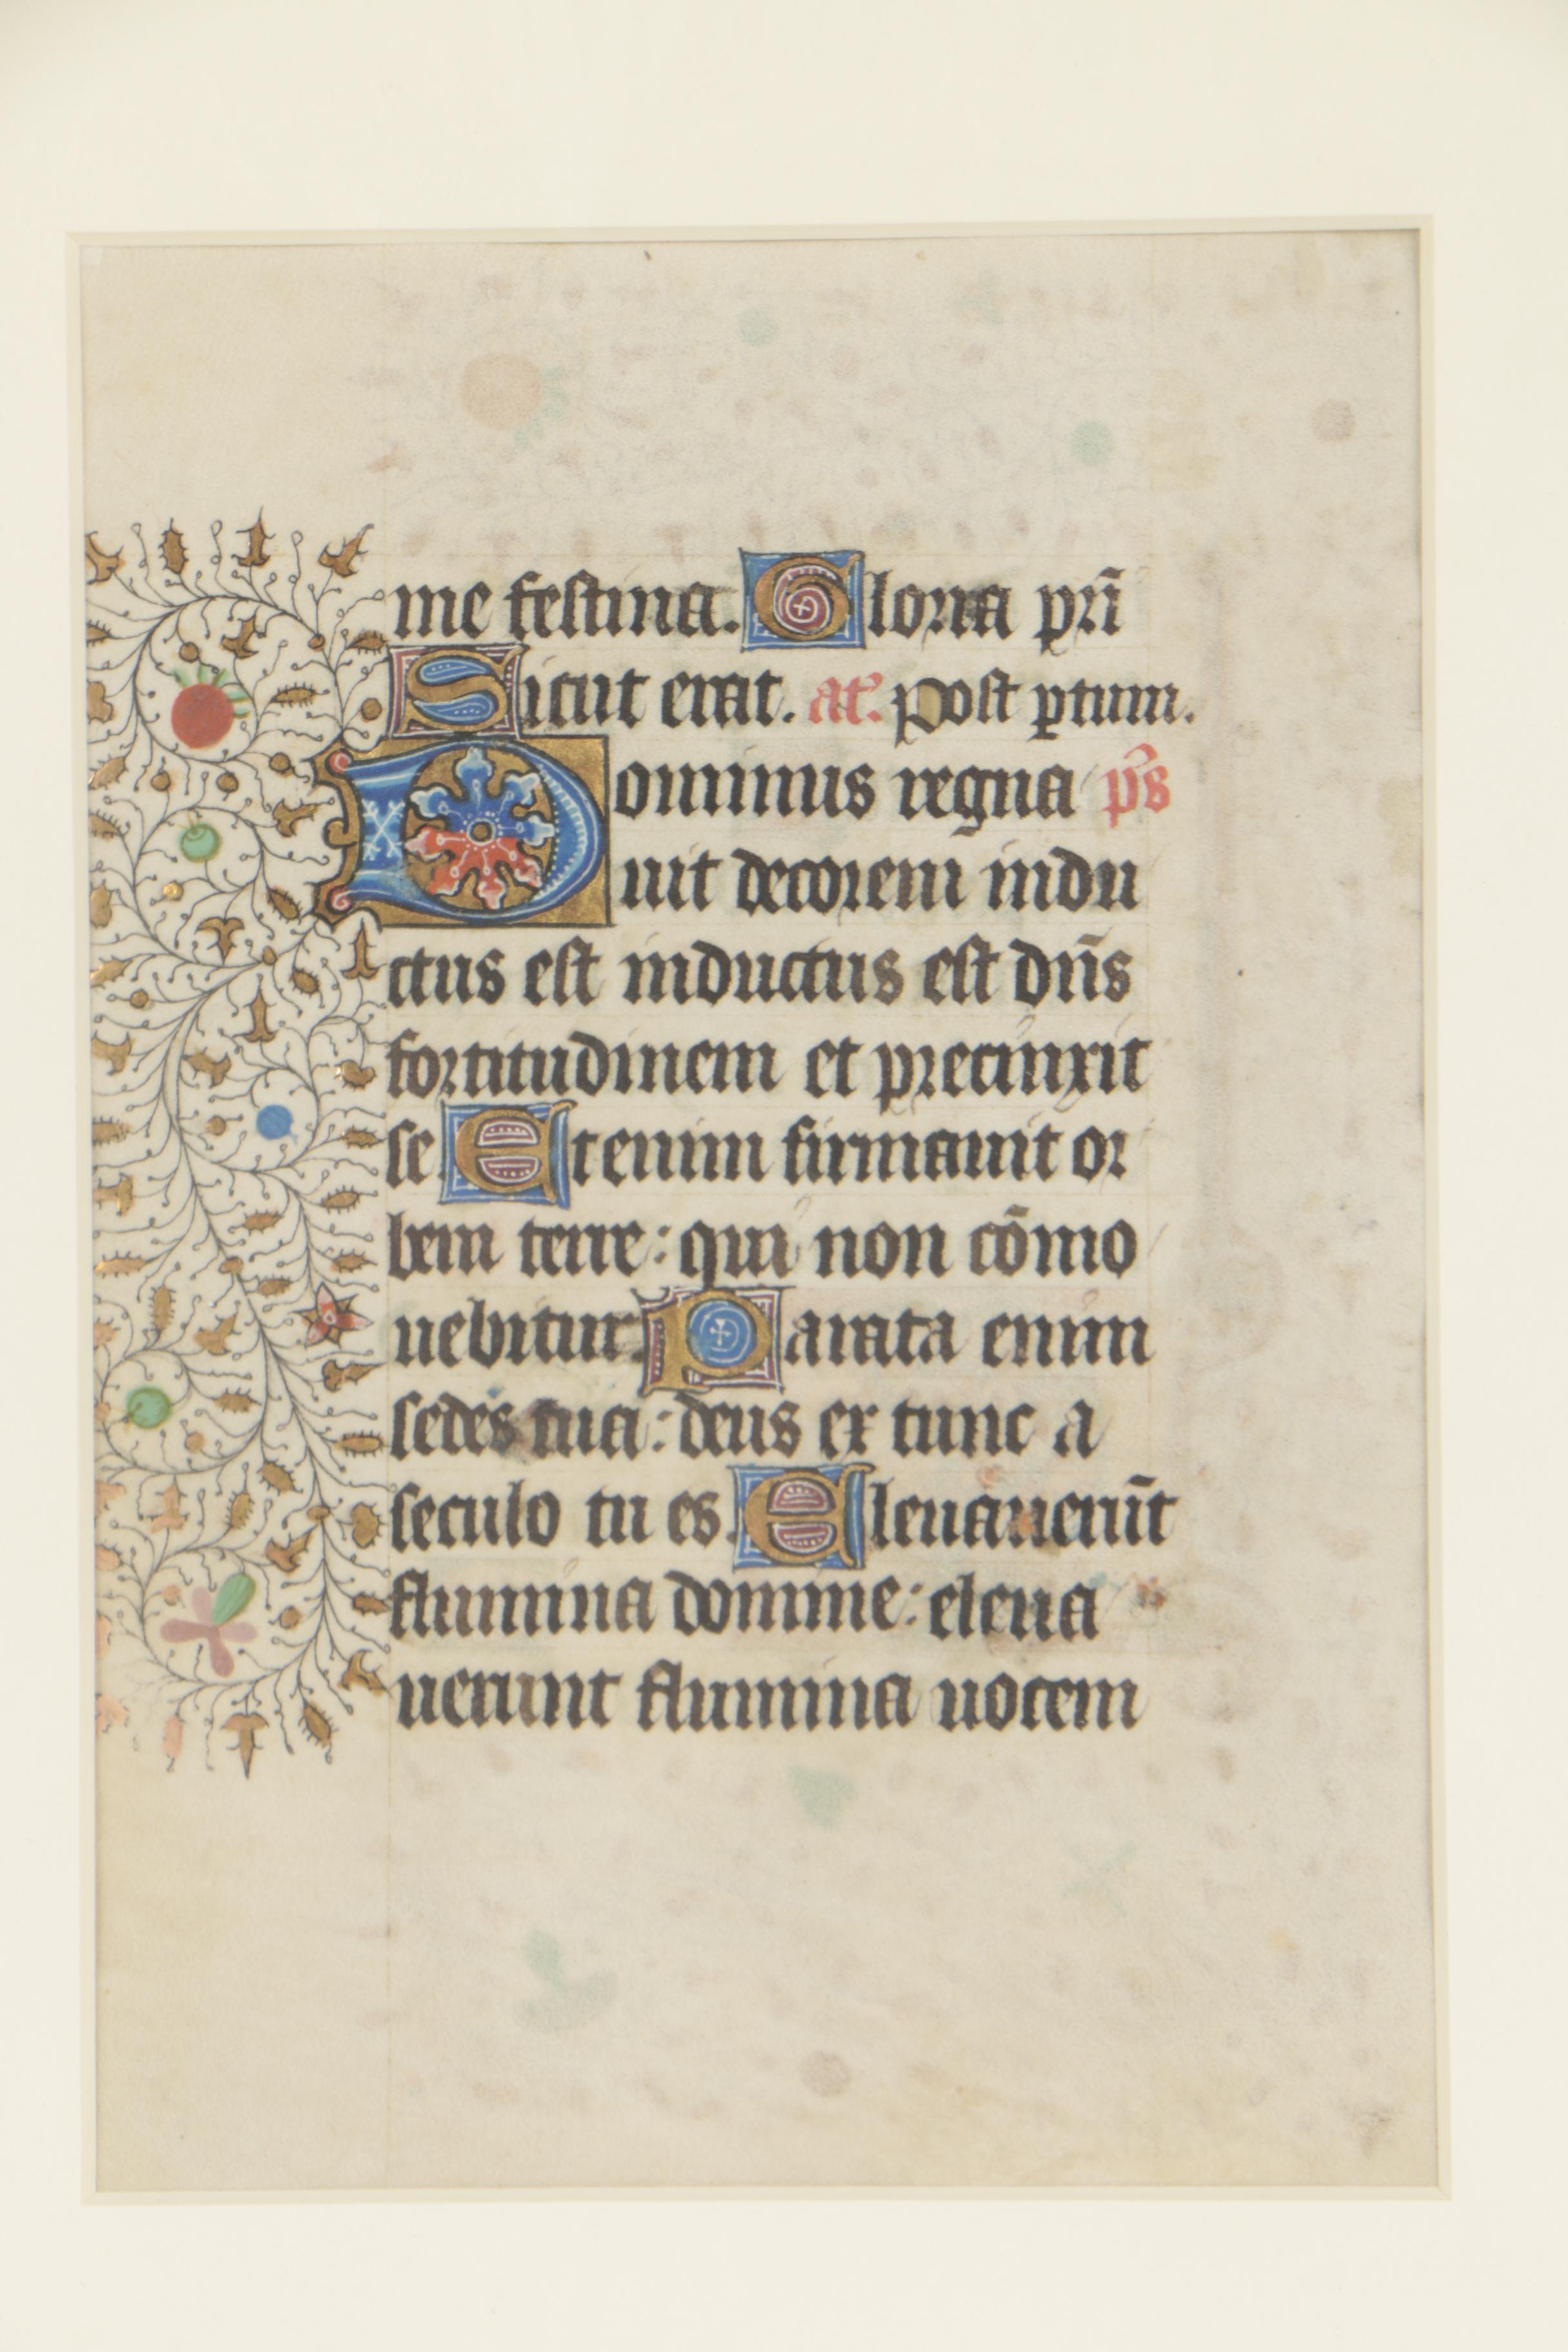 me festina. Gloria pr̄i
Sicut erat. at̄. Post ꝑtum.
Dominus regna ps̄
uit decorem indu
ctus est inductus est dn̄s
fortitudinem et precinxit
se. Etenim firmauit or
bem terre: qui non cōmo
uebitur. Parata enim
sedes tua: deus ex tunc a
seculo tu es. Eleuauerūt
flumina domine: eleua
uerunt flumina uocem